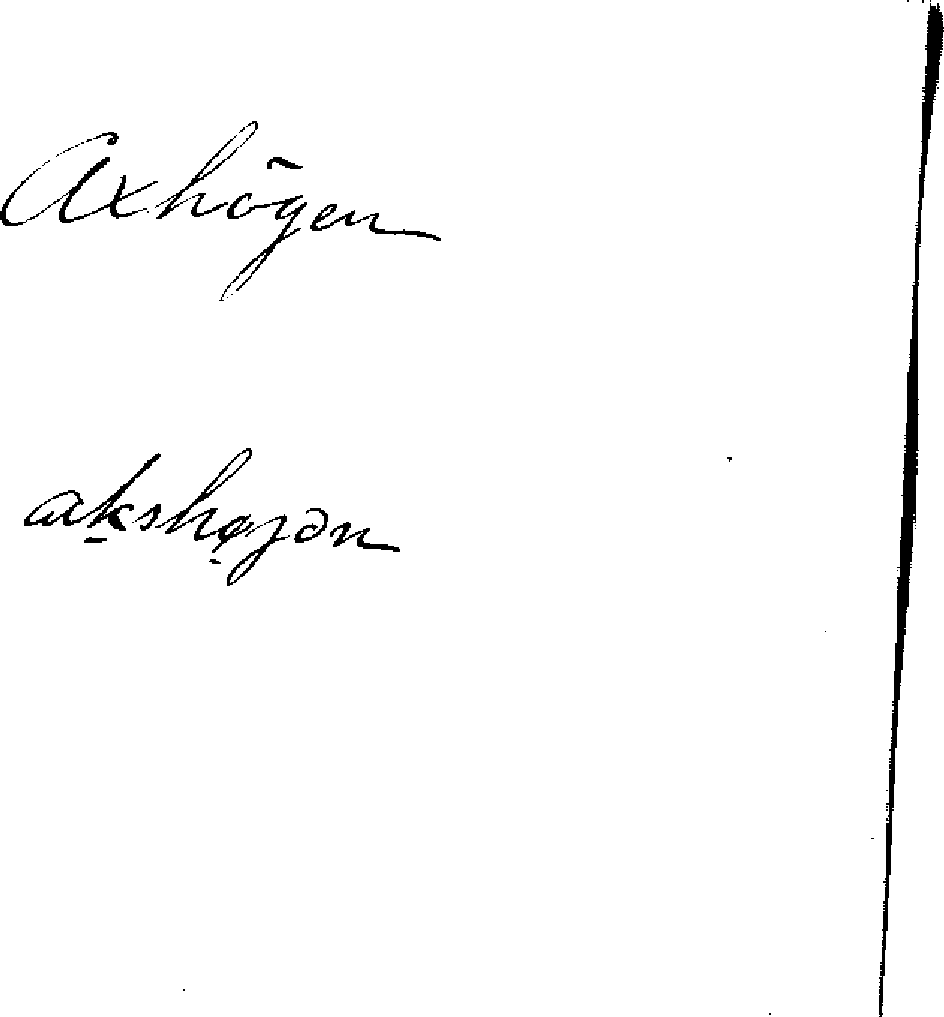 Axhögen
akshøjən